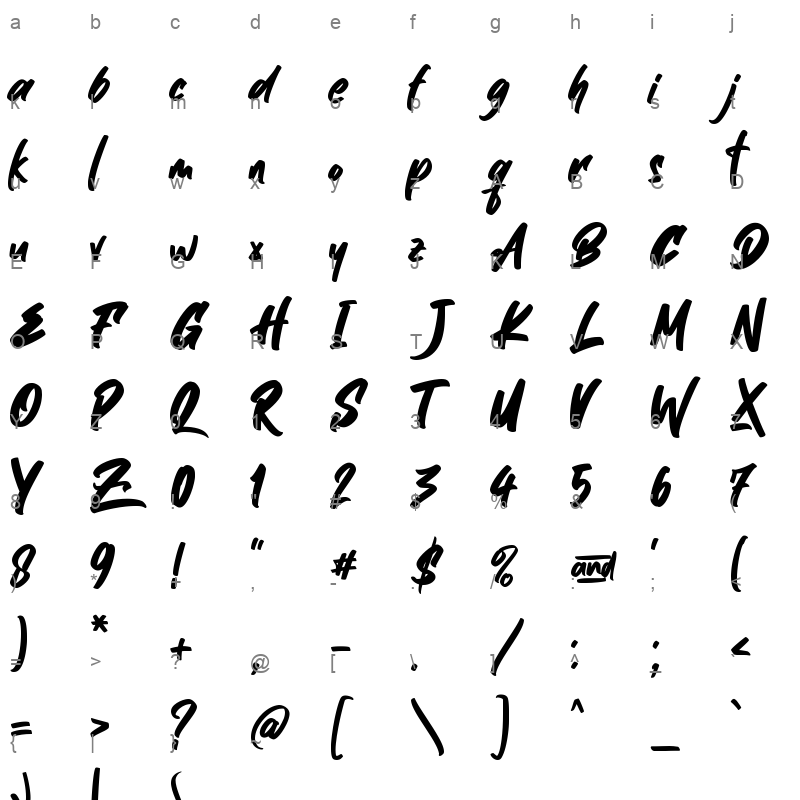 a b c d e f g h i j
a b c d e f g h i j
k l m n o p q r s t
k l m n o p q r s t
u v w x y z A B C D
u v w x y z A B C D
E F G H I J K L M N
E F G H I J K L M N
O P Q R S T U V W X
O P Q R S T U V W X
Y Z 0 1 2 3 4 5 6 7
Y Z 0 1 2 3 4 5 6 7
8 9 ! " # $ % & ' (
8 9 ! " # $ % and ' (
) * + , - . / : ; <
) * + , - . / : ; <
= > ? @ [ \ ] ^ _ `
= > ? @ [ \ ] ^ _ `
{ | } ~